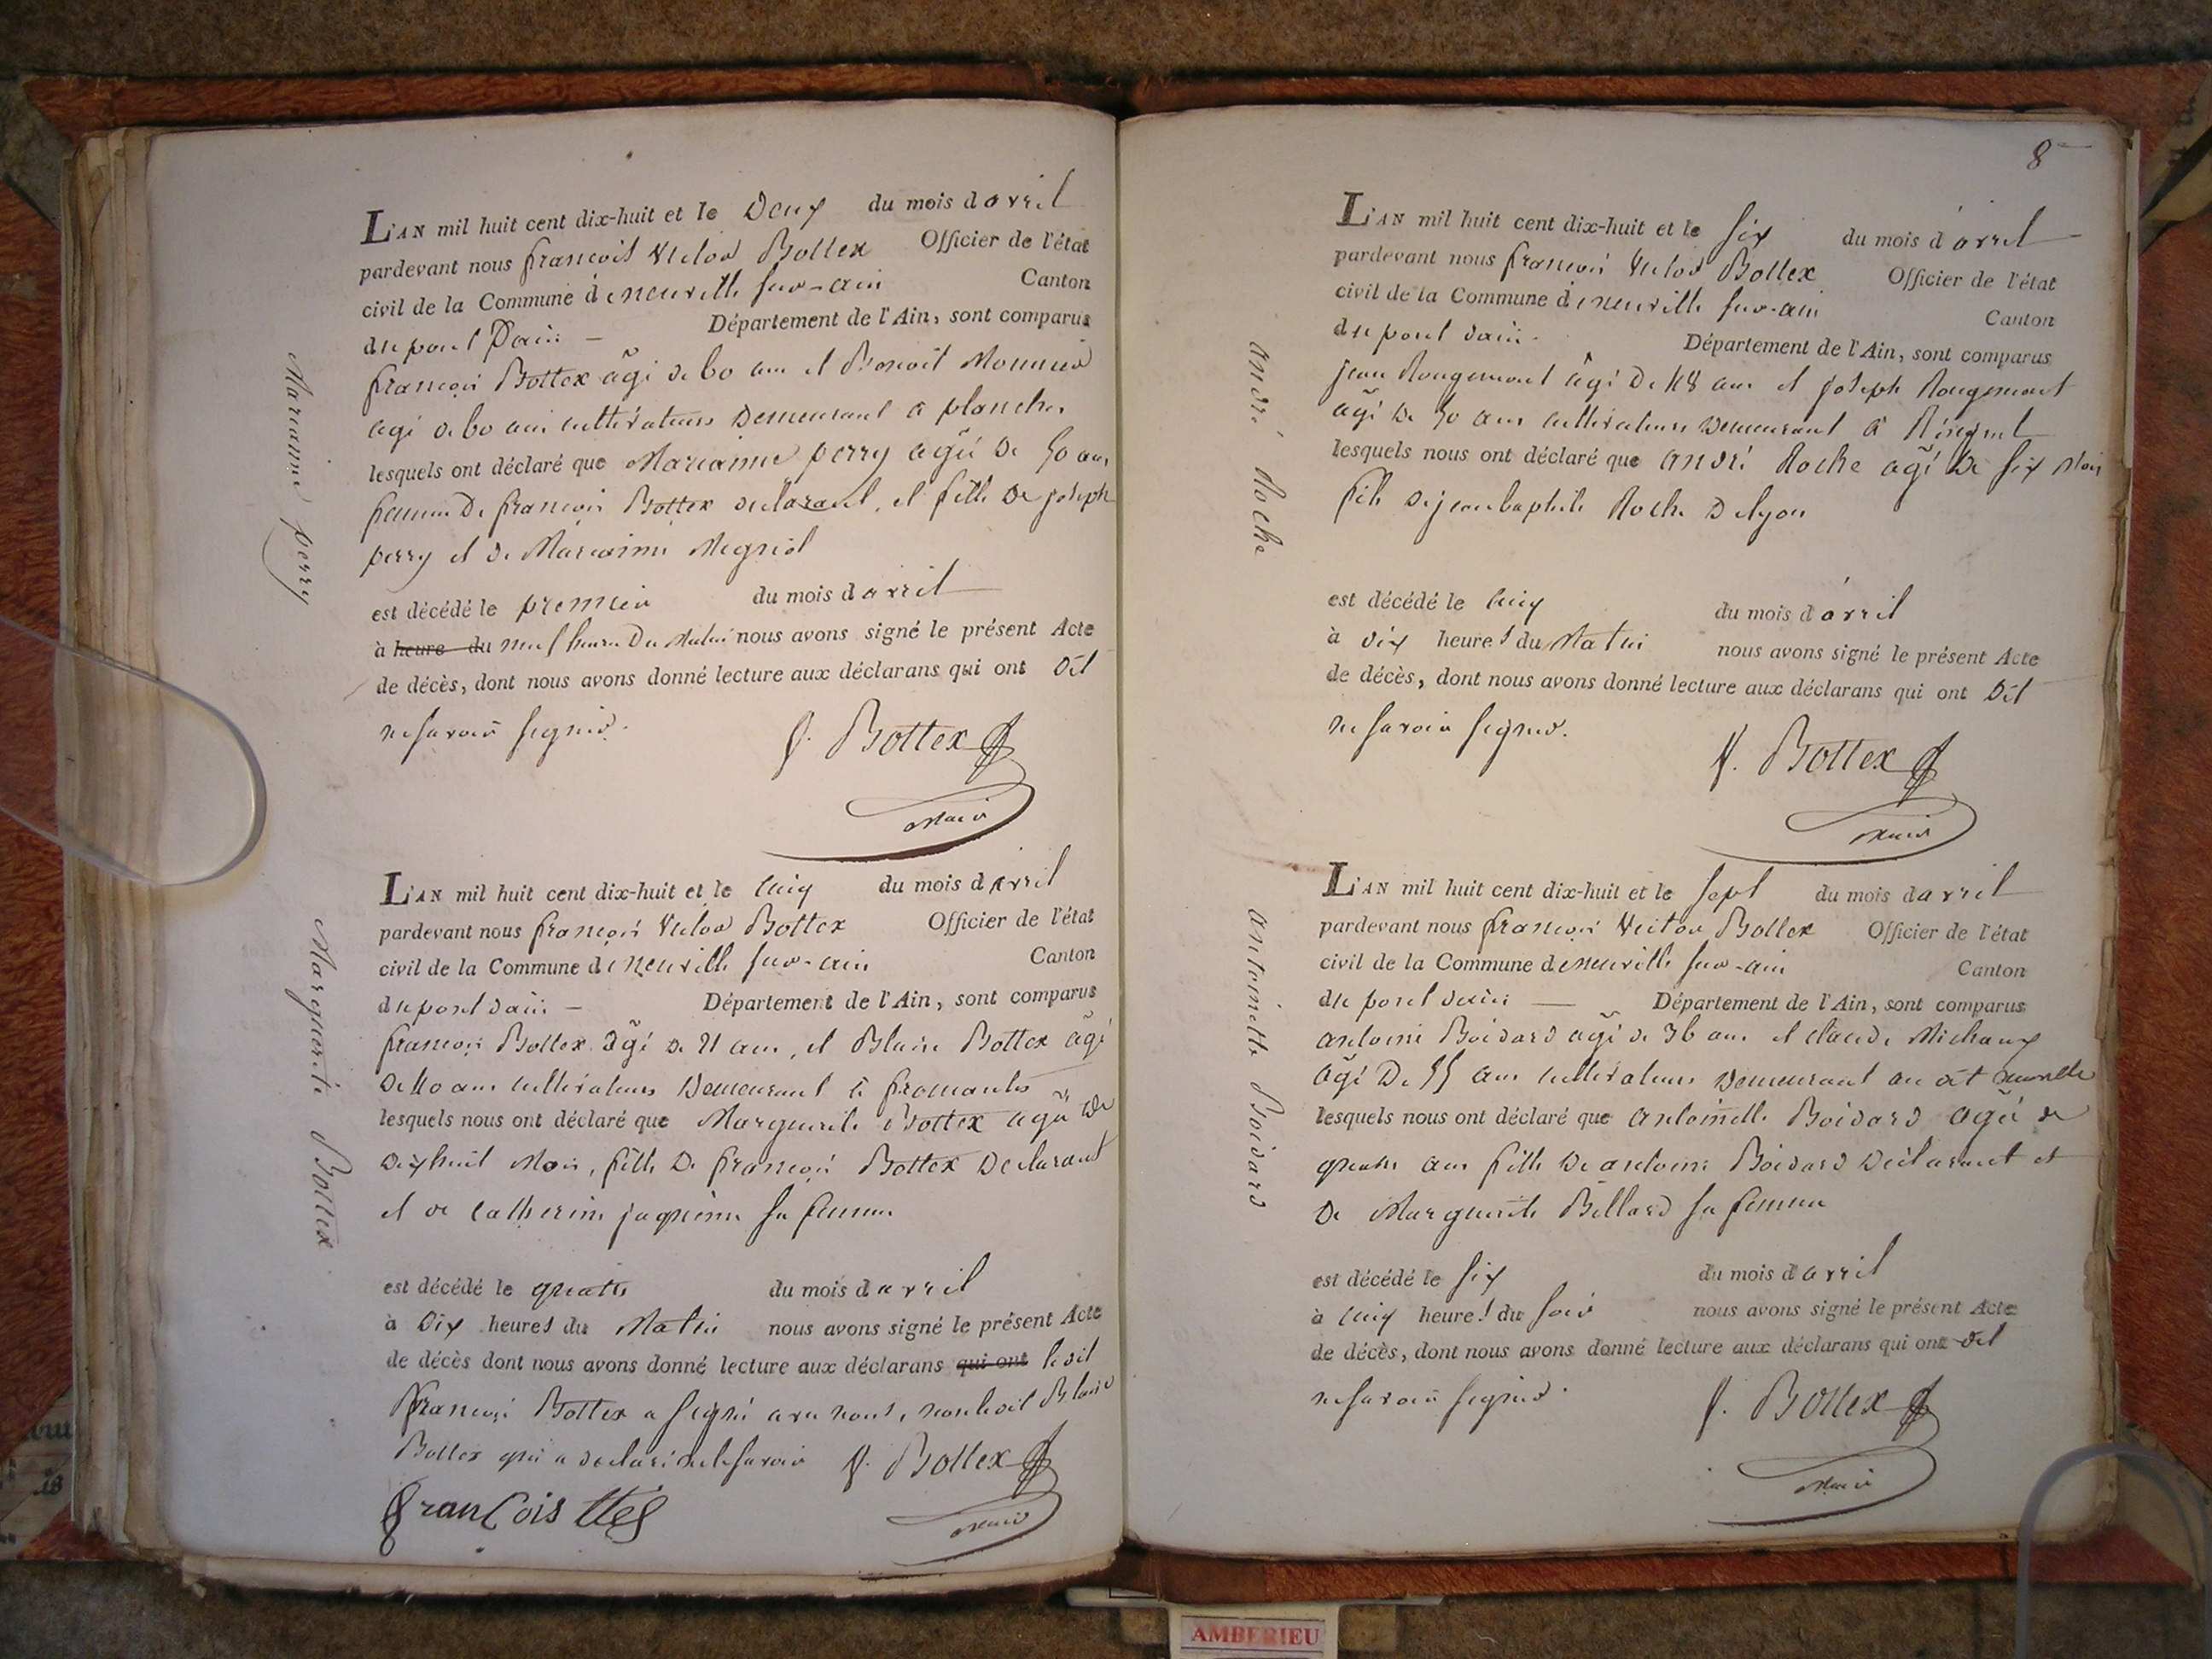 L'AN mil huit cent dix-huit et le Deux du mois d avril
pardevant nous françois Victor Bottex Officier de l'état
civil de la Commune de neuville sur-ain Canton
du pont Dain — Département de l'Ain, sont comparus
françois Bottex agé de 60 ans et Benoit Monnier
agé de 60 ans cultivateurs Demeurant a planches
lesquels ont déclaré que Marianne perry agée de 50 ans
femme De françois Bottex declarant, et fille De joseph
perry et de Marianne
est décédé le premier du mois d avril
à heure du neuf heures Du Matin nous avons signé le présent Acte
de décès, dont nous avons donné lecture aux déclarans qui ont Dit
ne savoir signer.
V. Bottex
Maire
Marianne perry
L'AN mil huit cent dix-huit et le cinq du mois d avril
pardevant nous françois Victor Bottex Officier de l'état
civil de la Commune de neuville sur-ain Canton
du pont dain — Département de l'Ain, sont comparus
françois Bottex agé de 21 ans, et Blaise Bottex agé
De 40 ans cultivateurs Demeurant à fromentes
lesquels nous ont déclaré que Marguerite Bottex agée De
Dixhuit Mois, fille De françois Bottex Declarant
et de Catherine jaquemin sa femme
est décédé le quatre du mois d avril
à Dix heures du Matin nous avons signé le présent Acte
de décès dont nous avons donné lecture aux déclarans qui ont ledit
françois Bottex a signé avec nous, non ledit Blaise
Bottex qui a declaré ne le savoir V. Bottex
Maire
françois
Marguerite Bottex
8
L'AN mil huit cent dix-huit et le six du mois d avril
pardevant nous françois Victor Bottex Officier de l'état
civil de la Commune de neuville sur-ain Canton
du pont dain. Département de l'Ain, sont comparus
jean Rougemont agé De 48 ans et joseph Rougemont
agé De 50 ans cultivateurs Demeurant à
lesquels nous ont déclaré que andré Roche agé De six Mois
fils de jeanbaptiste Roche De lyon
est décédé le cinq du mois d avril
à dix heures du Matin nous avons signé le présent Acte
de décès, dont nous avons donné lecture aux déclarans qui ont Dit
ne savoir signer.
V. Bottex
Maire
andré Roche
L'AN mil huit cent dix-huit et le sept du mois d avril
pardevant nous françois Victor Bottex Officier de l'état
civil de la Commune de neuville sur-ain Canton
du pont dain — Département de l'Ain, sont comparus
antoine Boidard agé de 36 ans et claude Michaux
agé De 55 ans cultivateurs Demeurant au dit neuville
lesquels nous ont déclaré que antoinette Boidard agée de
quatre ans fille De antoine Boidard Déclarant et
De Marguerite Billard sa femme
est décédé le six du mois d avril
à cinq heures du soir nous avons signé le présent Acte
de décès, dont nous avons donné lecture aux déclarans qui ont dit
ne savoir signer.
V. Bottex
Maire
antoinette Boidard
AMBERIEU